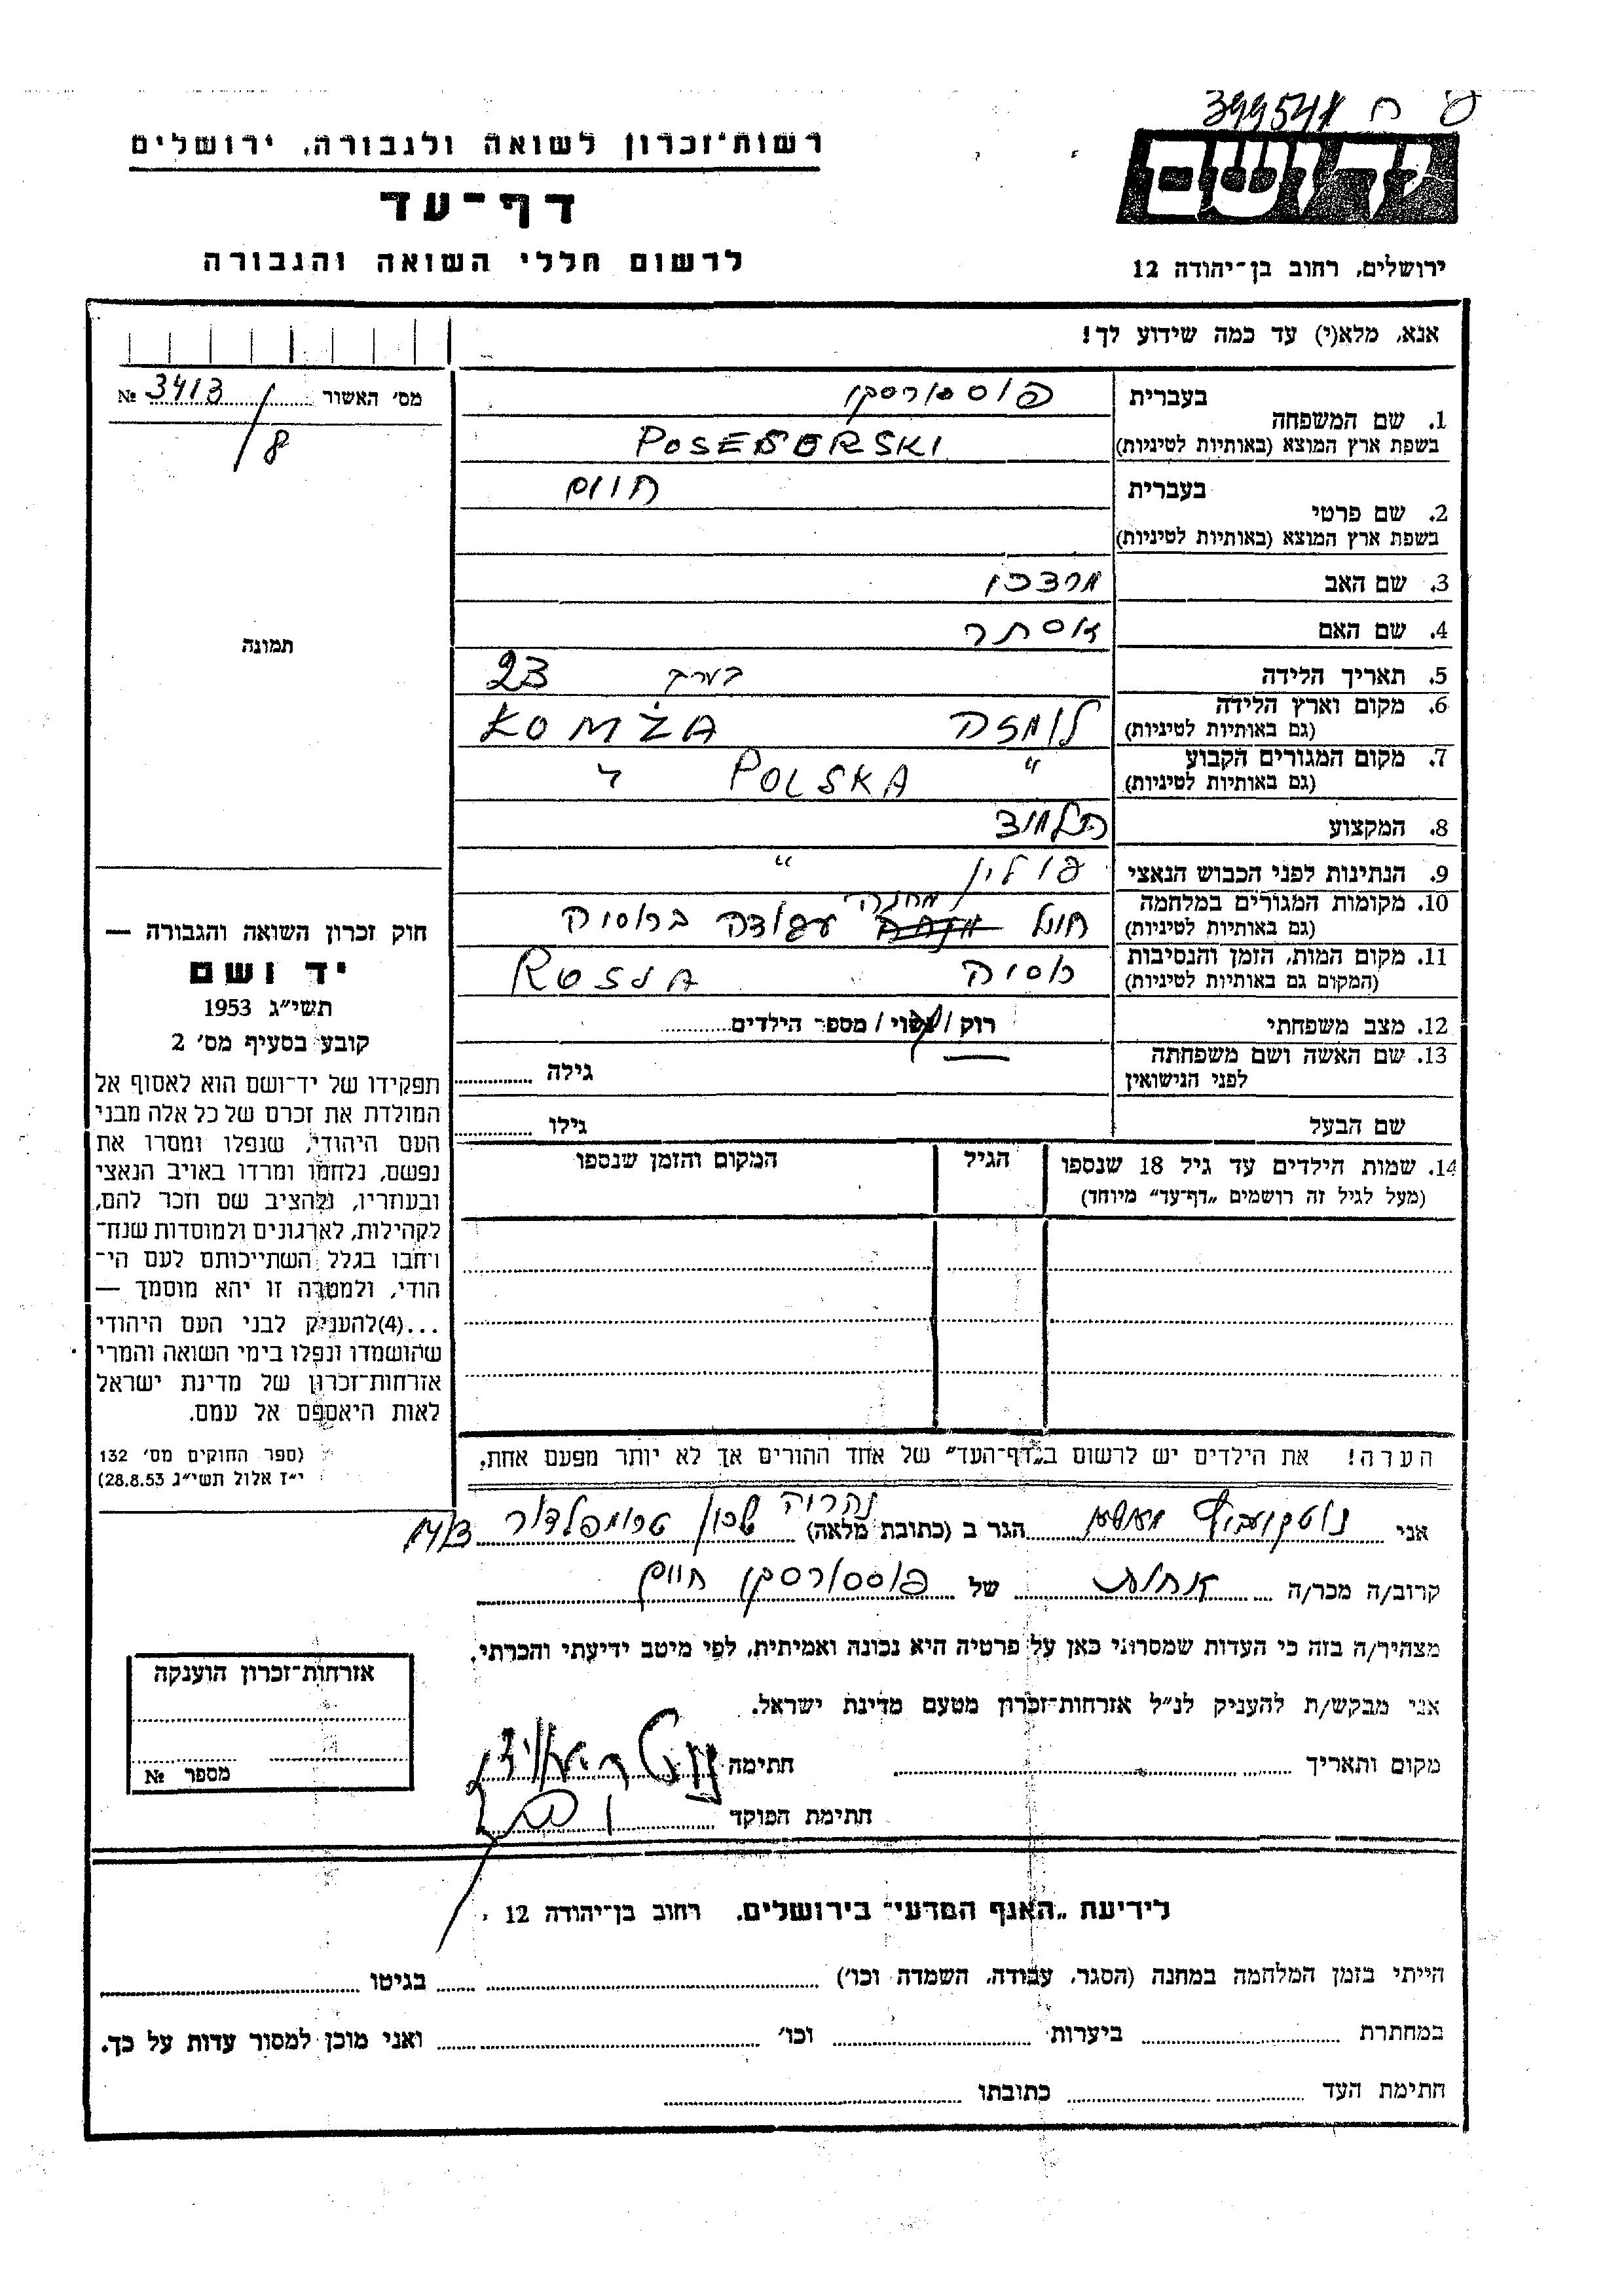 399541 ח
רשות־זכרון לשואה ולגבורה, ירושלים
דף־עד
לרשום חללי השואה והגבורה
יד ושם
ירושלים, רחוב בן־יהודה 12
אנא, מלא(י) עד כמה שידוע לך!
מס׳ האשור № 3413/8
תמונה
1. שם המשפחה
בעברית
בשפת ארץ המוצא (באותיות לטיניות) POSEBORSKI
2. שם פרטי
בעברית חיים
בשפת ארץ המוצא (באותיות לטיניות)
3. שם האב מרדכי
4. שם האם אסתר
5. תאריך הלידה בערך 23
6. מקום וארץ הלידה לומזה ŁOMŻA
(גם באותיות לטיניות)
7. מקום המגורים הקבוע " POLSKA
(גם באותיות לטיניות)
8. המקצוע תלמיד
9. הנתינות לפני הכבוש הנאצי פולין "
10. מקומות המגורים במלחמה מחנה עבודה ברוסיה
(גם באותיות לטיניות)
11. מקום המות, הזמן והנסיבות רוסיה ROSJA
(המקום גם באותיות לטיניות)
12. מצב משפחתי רוק / נשוי / מספר הילדים
13. שם האשה ושם משפחתה
לפני הנישואין גילה
שם הבעל גילו
14. שמות הילדים עד גיל 18 שנספו הגיל המקום והזמן שנספו
(מעל לגיל זה רושמים „דף־עד״ מיוחד)
הערה! את הילדים יש לרשום ב„דף־העד״ של אחד ההורים אך לא יותר מפעם אחת.
חוק זכרון השואה והגבורה —
יד ושם
תשי״ג 1953
קובע בסעיף מס׳ 2
תפקידו של יד־ושם הוא לאסוף אל
המולדת את זכרם של כל אלה מבני
העם היהודי, שנפלו ומסרו את
נפשם, נלחמו ומרדו באויב הנאצי
ובעוזריו, ולהציב שם וזכר להם,
לקהילות, לארגונים ולמוסדות שנח־
ויחבו בגלל השתייכותם לעם הי־
הודי, ולמטרה זו יהא מוסמך —
...(4)להעניק לבני העם היהודי
שהושמדו ונפלו בימי השואה והמרי
אזרחות־זכרון של מדינת ישראל
לאות היאספם אל עמם.
(ספר החוקים מס׳ 132
י״ז אלול תשי״ג 28.8.53)
אני הגר ב (כתובת מלאה) נהריה שכון טרומפלדור
קרוב/ה מכר/ה אחות של חיים
מצהיר/ה בזה כי העדות שמסרתי כאן על פרטיה היא נכונה ואמיתית, לפי מיטב ידיעתי והכרתי.
אני מבקש/ת להעניק לנ״ל אזרחות־זכרון מטעם מדינת ישראל.
מקום ותאריך חתימה
חתימת הפוקד
אזרחות־זכרון הוענקה
מספר №
לידיעת „האגף המדעי״ בירושלים. רחוב בן־יהודה 12
הייתי בזמן המלחמה במחנה (הסגר, עבודה, השמדה וכו׳) בגיטו
במחתרת ביערות וכו׳ ואני מוכן למסור עדות על כך.
חתימת העד כתובתו